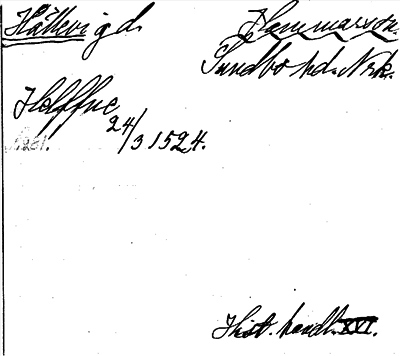 Hällevig d. Hammarson.
Sundbo hd. Nrk.
Holffne
24/3 1524.
Hist. handl. XVI.